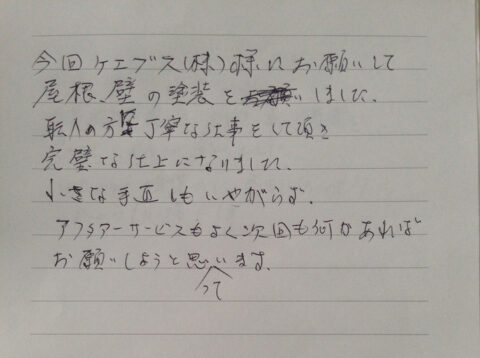 今回ケエブス(株)様にお願いして
屋根、壁の塗装をしました。
職人の方皆丁寧な仕事をして頂き
完璧な仕上になりました。
小さな手直しもいやがらず、
アフタアーサービスもよく次回も何かあれば
お願いしようと思っています。